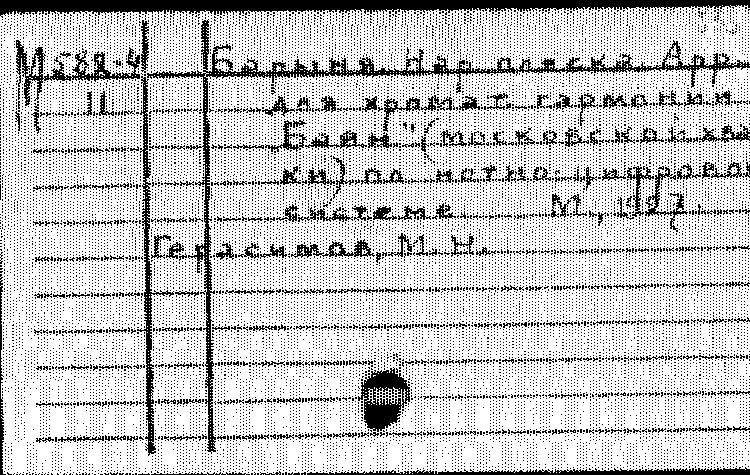 М 588-4 Барыня. Нар. пляска. Арр.
11 для хромат. гармонии
Баян" (московской хва
ки) по нотно-цифровой
системе. М., 1927.
Герасимов, М. Н.